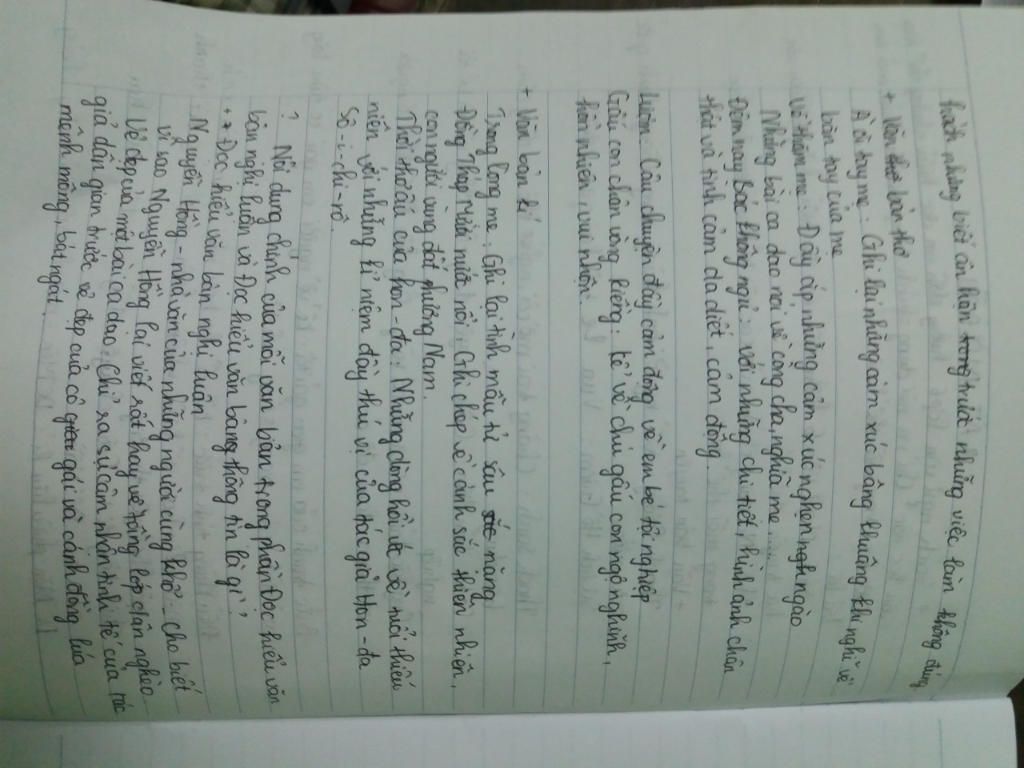 hoách nhưng biết ân hận trong trước những việc làm không đúng
+ Văn thơ bản thơ
À ơi tay mẹ. Ghi lại những cảm xúc bâng khuâng khi nghĩ về
bàn tay của mẹ
Về thăm mẹ: Đầy ắp những cảm xúc nghẹn ngh ngào
Những bài ca dao nói về công cha, nghĩa mẹ
Đêm nay Bác không ngủ: với những chi tiết, hình ảnh chân
thật và tình cảm da diết, cảm động.
Câu chuyện đầy cảm động về em bé tội nghiệp
Gấu con chân vòng kiềng: kể về chú gấu con ngộ nghĩnh,
hồn nhiên, vui nhộn
+ Văn bản kí
Trong lòng mẹ: Ghi lại tình mẫu tử sâu sắc nặng
Đồng Tháp Mười mùa nước nổi: Ghi chép về cảnh sắc thiên nhiên,
con người vùng đất phương Nam.
Thời thơ ấu của hon-đa: Những dòng hồi ức về tuổi thiếu
niên với những kỉ niệm đầy thú vị của tác giả Hon-đa
Sô-i-chi-rô.
? Nội dung chính của mỗi văn bản trong phần Đọc hiểu văn
bản nghị luận và Đọc hiểu văn bảng thông tin là gì?
+ * Đọc hiểu văn bản nghị luận
Nguyên Hồng - nhà văn của những người cùng khổ: cho biết
vì sao Nguyên Hồng lại viết rất hay về tầng lớp dân nghèo
Vẻ đẹp của một bài ca dao: Chỉ ra sự cảm nhận tinh tế của tác
giả dân gian trước vẻ đẹp của cô gái và cánh đồng lúa
mênh mông, bát ngát.